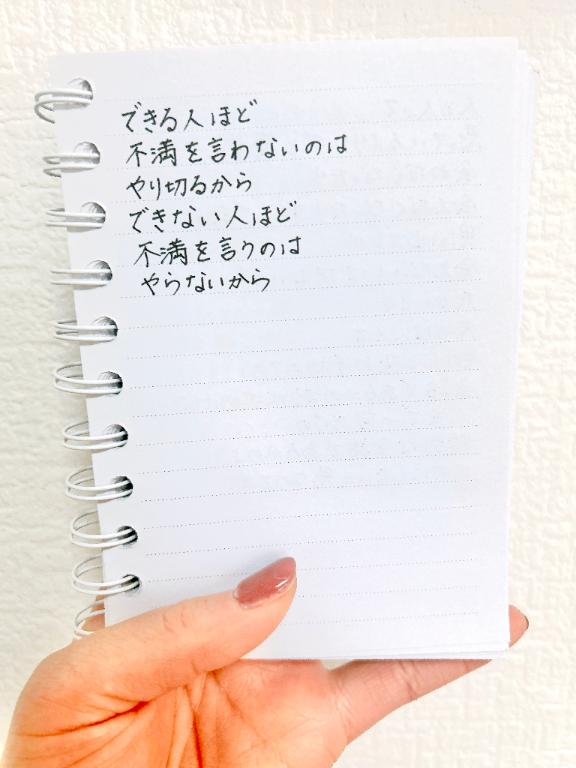 できる人ほど
不満を言わないのは
やり切るから
できない人ほど
不満を言うのは
やらないから